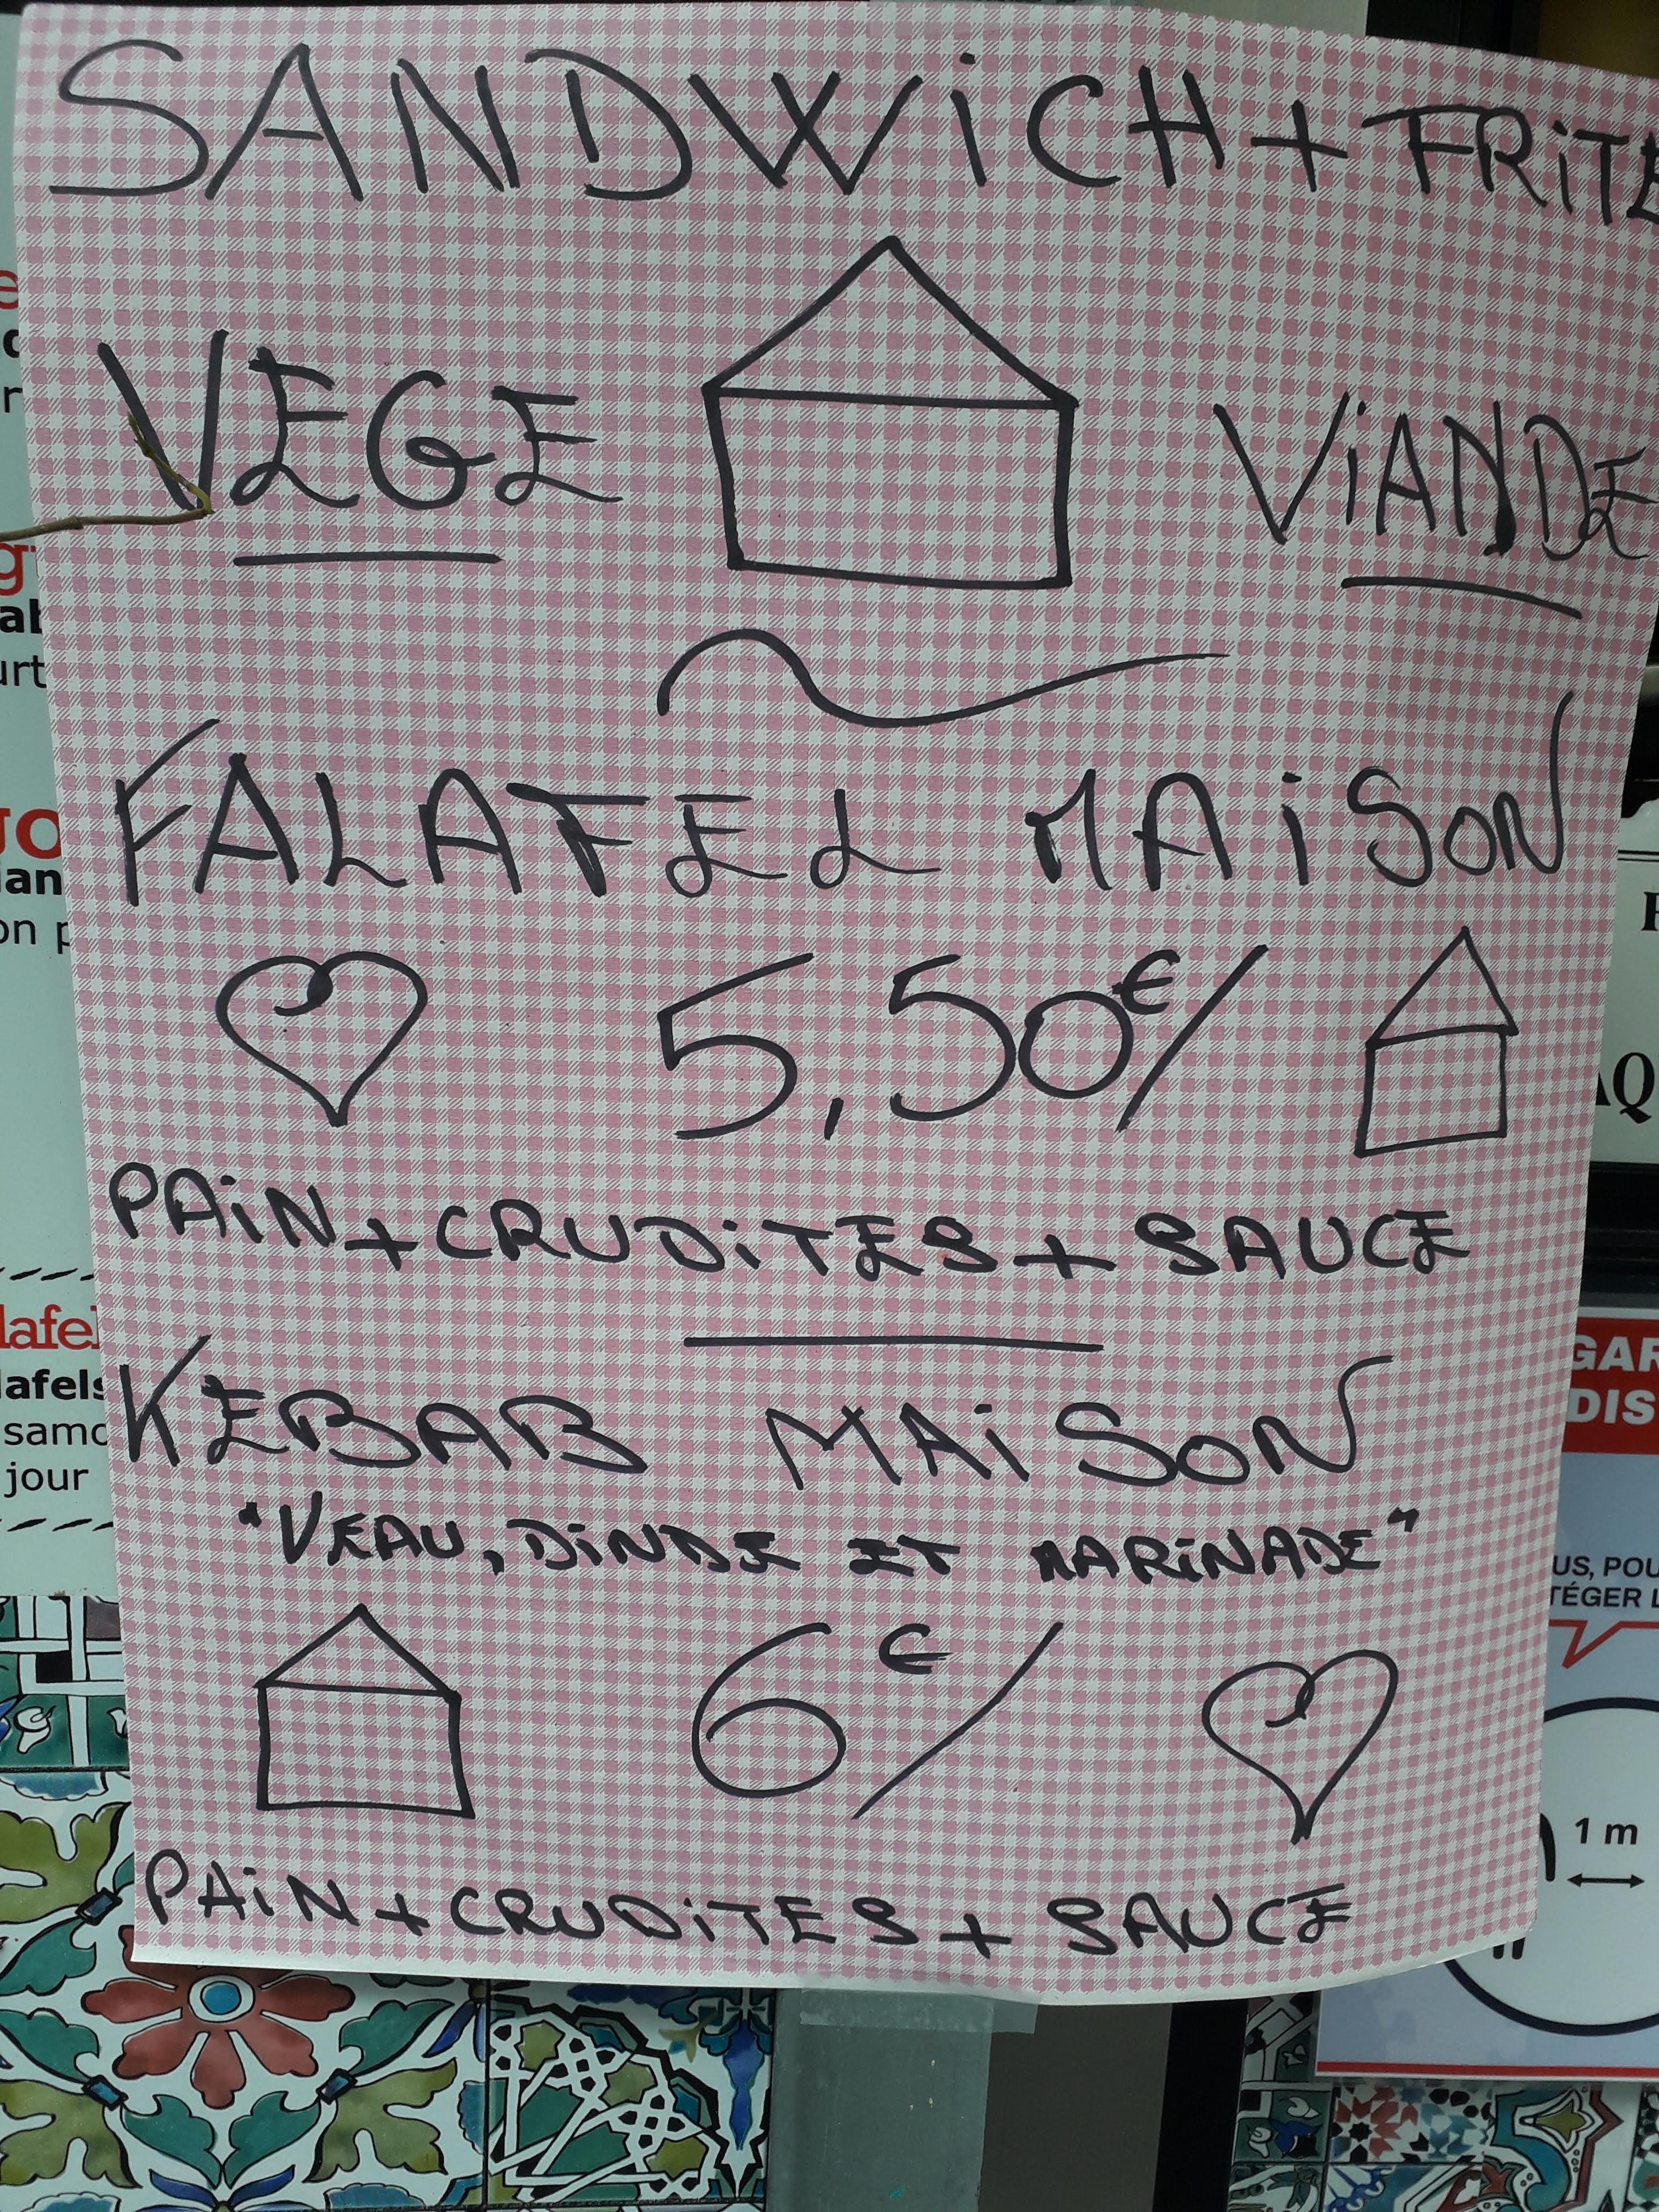 SANDWiCH + FRiTE
VEGE
ViANDE
FALAFEL MAiSON
5,50€/
PAiN + CRUDiTES + SAUCE
KEBAB MAiSON
"VEAU, DiNDE ET MARiNADE"
6€/
PAiN + CRUDiTES + SAUCE
urt
on p
lafel
lafels
jour
GAR
DIS
US, POU
TÉGER L
1 m
AQ